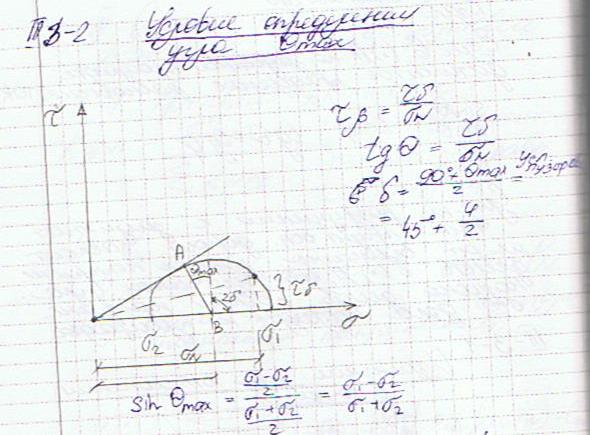 П3-2 Условие определения
угла θmax
τ
τβ = τδ/σN
tgθ = τδ/σN
δ = (90°+θmax)/2 =
= 45° + φ/2
A
θmax
2δ
} τδ
B
σ
σ2
σ1
σN
sin θmax = ((σ1-σ2)/2)/((σ1+σ2)/2) = (σ1-σ2)/(σ1+σ2)